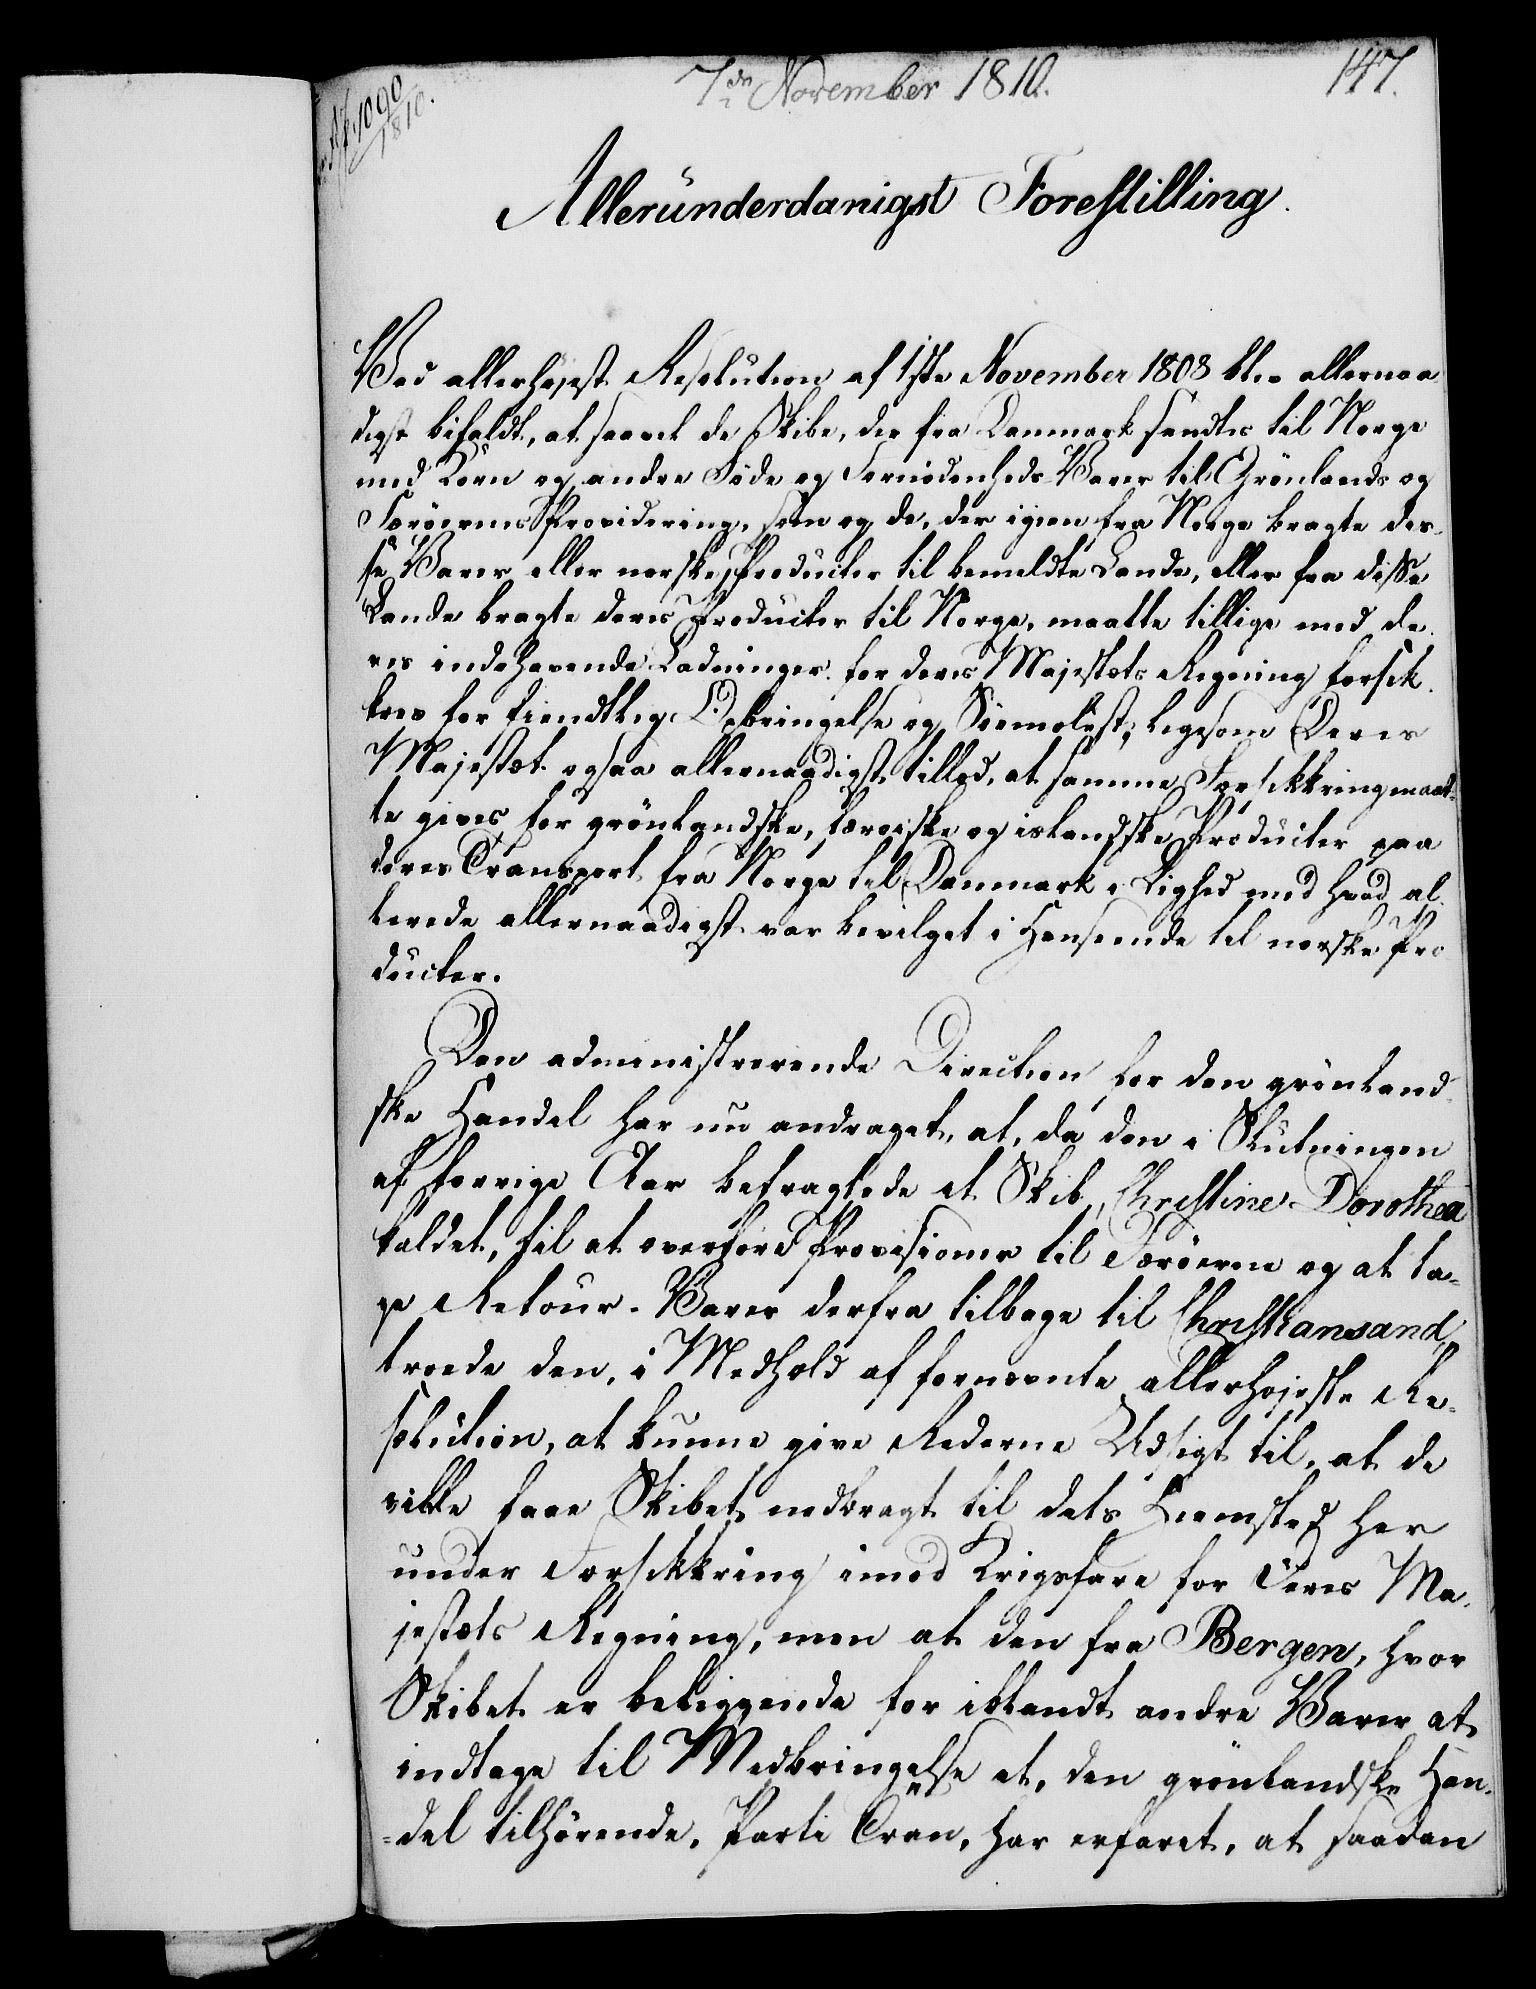 7de November 1810.
147.
1090
1810.
Allerunderdanigst Forestilling.
Ved allerhøjest Resolution af 1ste November 1808 blev allernaa
digst bifaldt, at saavel de Skibe, der fra Danmark sendtes til Norge
med Korn og andre Føde og Fornødenheds-Varer til Grønlands og
Færøernes Providering, som og de, der igien fra Norge bragte des-
se Varer eller norske Producter til bemeldte Lande, eller fra disse
Lande bragte deres Producter til Norge, maatte tillige med de
res indehavende Ladninger for Deres Majestæts Regning forsik
kres for fiendtlig Opbringelse og Søemolest, ligesom Deres
Majestæt ogsaa allernaadigst tillod, at samme Forsikkring maat-
te gives for grønlandske, færøiske og islandske Producter paa
deres Transport fra Norge til Danmark i Lighed med hvad al
lerede allernaadigst var bevilget i Henseende til norske Pro
ducter.
Den administrerende Direction for den grønland
ske Handel har nu andraget, at, da den i Slutningen
af forrige Aar befragtede et Skib, Christine Dorothea
kaldet, til at overføre Provisioner til Færøerne og at ta-
ge Retour-Varer derfra tilbage til Christiansand,
troede den, i Medhold af fornævnte allerhøjeste Re-
solution, at kunne give Rederne Udsigt til, at de
ville faae Skibet nedbragt til dets Hiemsted her
under Forsikkring imod Krigsfare for Deres Ma-
jestæts Regning, men at den fra Bergen, hvor
Skibet er beliggende for iblandt andre Varer at
indtage til Medbringelse et, den grønlandske Han-
-del tilhørende, Parti Tran, har erfaret, at saadan